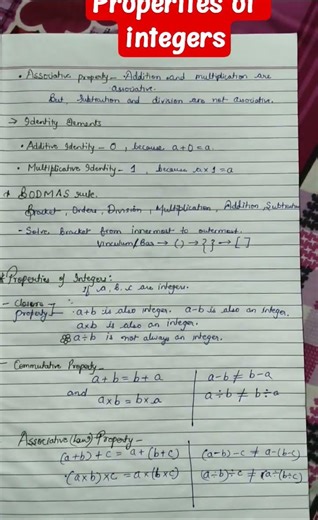 Properites of
integers
• Associative property - Addition and multiplication are
associative.
But, Subtraction and division are not associative.
→ Identity Elements
• Additive Identity - 0, because a+0=a.
• Multiplicative Identity - 1, because a×1=a
* BODMAS rule.
Bracket, Orders, Division, Multiplication, Addition, Subtraction
- Solve Bracket from innermost to outermost.
Vinculum/Bar → () → { } → [ ]
* Properties of Integers:
If a, b, c are integers.
- Closure
property - • a+b is also integer. a-b is also an integer.
a×b is also an integer.
⊗ a÷b is not always an integer.
- Commutative Property -
a+b = b+a a-b ≠ b-a
and a×b = b×a a÷b ≠ b÷a
Associative (Law) Property -
(a+b)+c = a+(b+c) (a-b)-c ≠ a-(b-c)
(a×b)×c = a×(b×c) (a÷b)÷c ≠ a÷(b÷c)